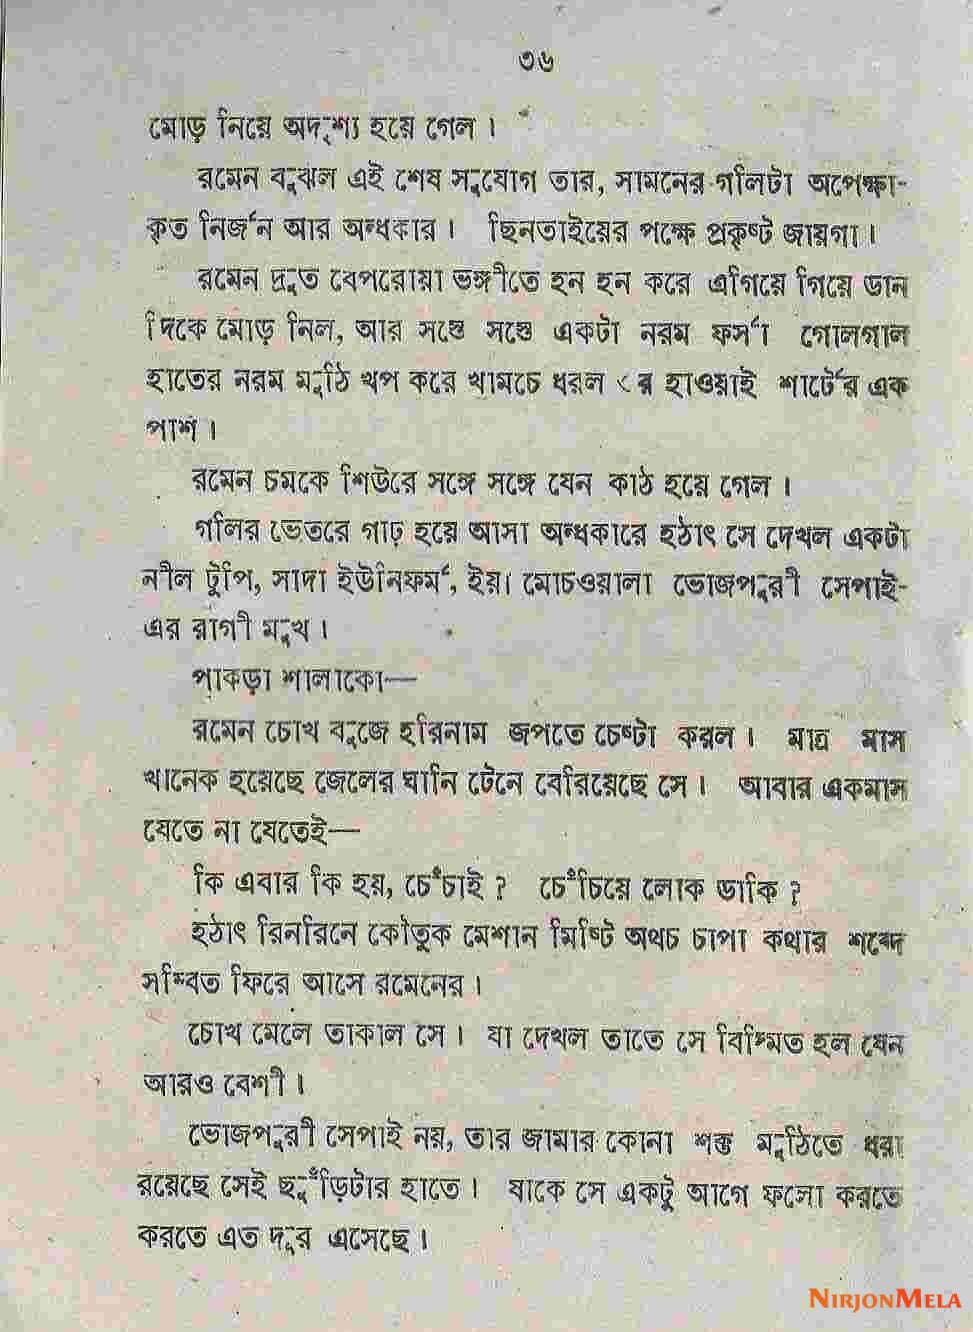 ৩৬
মোড় নিয়ে অদৃশ্য হয়ে গেল ।
রমেন বুঝল এই শেষ সুযোগ তার, সামনের গলিটা অপেক্ষা-
কৃত নির্জন আর অন্ধকার । ছিনতাইয়ের পক্ষে প্রকৃষ্ট জায়গা ।
রমেন দ্রুত বেপরোয়া ভঙ্গীতে হন হন করে এগিয়ে গিয়ে ডান
দিকে মোড় নিল, আর সঙ্গে সঙ্গে একটা নরম ফর্সা গোলগাল
হাতের নরম মুঠি খপ করে খামচে ধরল র হাওয়াই শার্টের এক
পাশ ।
রমেন চমকে শিউরে সঙ্গে সঙ্গে যেন কাঠ হয়ে গেল ।
গলির ভেতরে গাঢ় হয়ে আসা অন্ধকারে হঠাৎ সে দেখল একটা
নীল টুপি, সাদা ইউনিফর্ম, ইয়া মোচওয়ালা ভোজপুরী সেপাই-
এর রাগী মুখ ।
পাকড়া শালাকো—
রমেন চোখ বুজে হরিনাম জপতে চেষ্টা করল । মাত্র মাস
খানেক হয়েছে জেলের ঘানি টেনে বেরিয়েছে সে । আবার একমাস
যেতে না যেতেই—
কি এবার কি হয়, চেঁচাই ? চেঁচিয়ে লোক ডাকি ?
হঠাৎ রিনরিনে কৌতুক মেশান মিষ্টি অথচ চাপা কথার শব্দে
সম্বিত ফিরে আসে রমেনের ।
চোখ মেলে তাকাল সে । যা দেখল তাতে সে বিস্মিত হল যেন
আরও বেশী ।
ভোজপুরী সেপাই নয়, তার জামার কোনা শক্ত মুঠিতে ধরা
রয়েছে সেই ছুঁড়িটার হাতে । যাকে সে একটু আগে ফলো করতে
করতে এত দূর এসেছে ।
NIRJONMELA